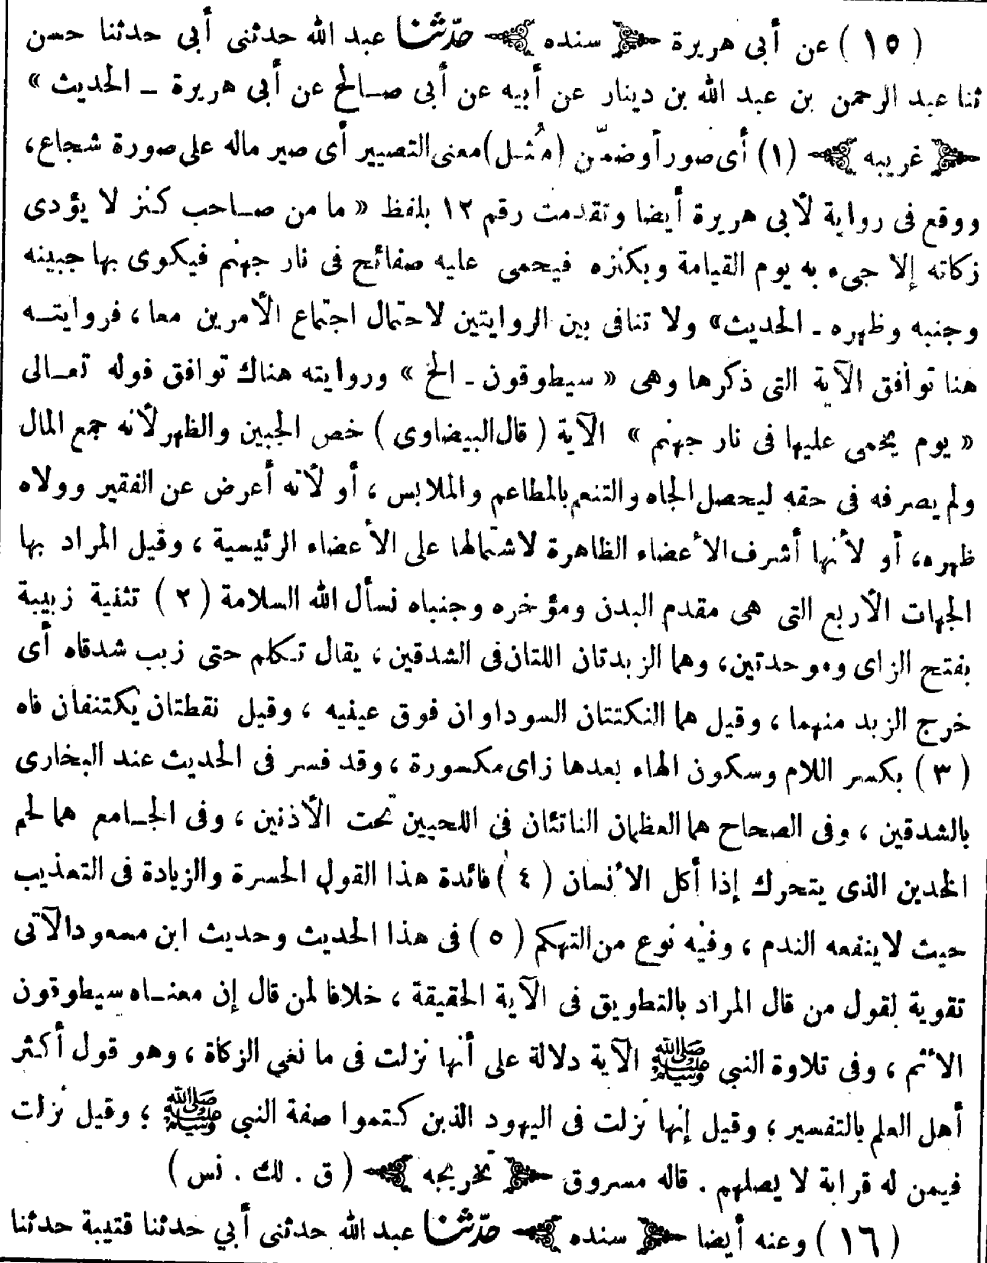 ( ١٥ ) عن أبى هريرة ﴿ سنده ﴾ حدّثنا عبد الله حدثنى أبى حدثنا حسن
ثنا عبد الرحمن بن عبد الله بن دينار عن أبيه عن أبى صالح عن أبى هريرة ـ الحديث »
﴿ غريبه ﴾ (١) أى صور أو ضمّن (مُثل) معنى التصيير أى صير ماله على صورة شجاع،
ووقع فى رواية لأبى هريرة أيضا وتقدمت رقم ١٢ بلفظ « ما من صاحب كنز لا يؤدى
زكاته إلا جىء به يوم القيامة وبكنزه فيحمى عليه صفائح فى نار جهنم فيكوى بها جبينه
وجنبه وظهره ـ الحديث» ولا تنافى بين الروايتين لاحتمال اجتماع الأمرين معا ، فروايته
هنا توافق الآية التى ذكرها وهى « سيطوقون ـ الخ » وروايته هناك توافق قوله تعالى
« يوم يحمى عليها فى نار جهنم » الآية ( قال البيضاوى ) خص الجبين والظهر لأنه جمع المال
ولم يصرفه فى حقه ليحصل الجاه والتنعم بالمطاعم والملابس ، أو لأنه أعرض عن الفقير وولاه
ظهره، أو لأنها أشرف الأعضاء الظاهرة لاشتمالها على الأعضاء الرئيسية ، وقيل المراد بها
الجهات الأربع التى هى مقدم البدن ومؤخره وجنباه نسأل الله السلامة ( ٢ ) تثنية زبيبة
بفتح الزاى وموحدتين، وهما الزبدتان اللتان فى الشدقين ، يقال تكلم حتى زبب شدقاه أى
خرج الزبد منهما ، وقيل هما النكتتان السوداوان فوق عينيه ، وقيل نقطتان يكتنفان فاه
( ٣ ) بكسر اللام وسكون الهاء بعدها زاى مكسورة ، وقد فسر فى الحديث عند البخارى
بالشدقين ، وفى الصحاح هما العظمان الناتئان فى اللحيين تحت الأذنين ، وفى الجامع هما لحم
الخدين الذى يتحرك إذا أكل الأنسان ( ٤ ) فائدة هذا القول الحسرة والزيادة فى التعذيب
حيث لاينفعه الندم ، وفيه نوع من التهكم ( ٥ ) فى هذا الحديث وحديث ابن مسعود الآتى
تقوية لقول من قال المراد بالتطويق فى الآية الحقيقة ، خلافا لمن قال إن معناه سيطوقون
الأثم ، وفى تلاوة النبي ﷺ الآية دلالة على أنها نزلت فى ما نغى الزكاة ، وهو قول أكثر
أهل العلم بالتفسير ؛ وقيل إنها نزلت فى اليهود الذين كتموا صفة النبي ﷺ ؛ وقيل نزلت
فيمن له قرابة لا يصلهم . قاله مسروق ﴿ تخريجه ﴾ ( ق . لك . نس )
( ١٦ ) وعنه أيضا ﴿ سنده ﴾ حدّثنا عبد الله حدثنى أبي حدثنا قتيبة حدثنا